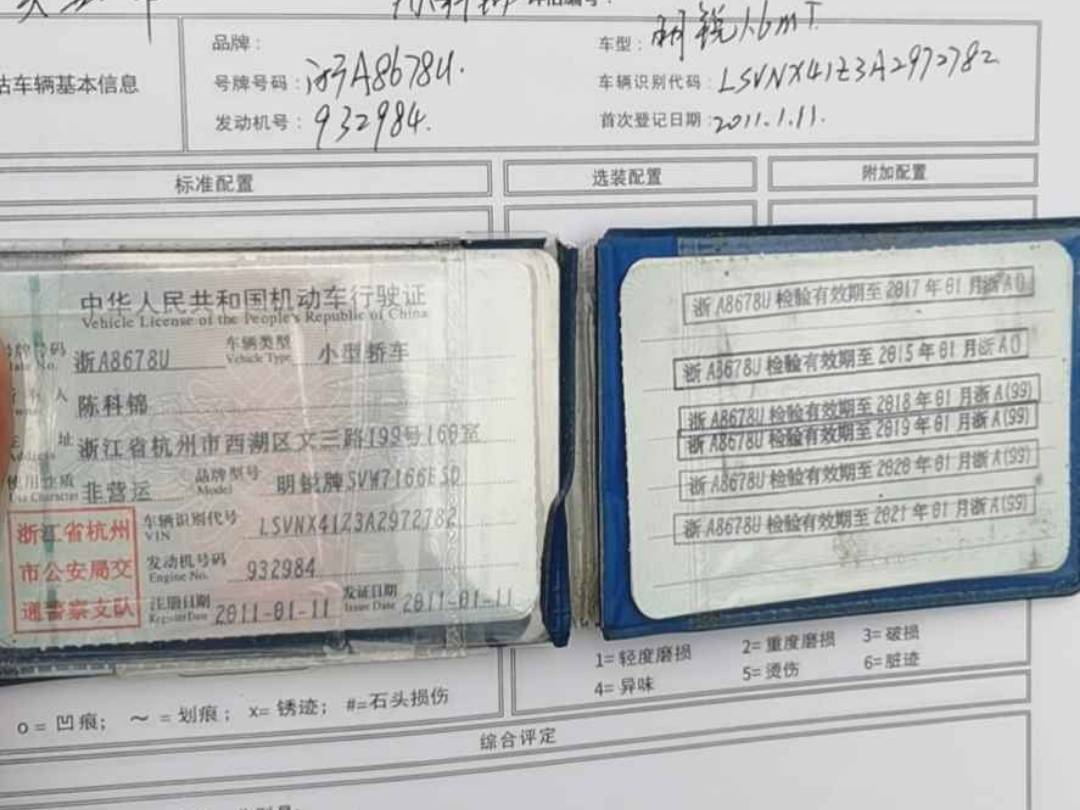 品牌：
车型：明锐1.6MT
估车辆基本信息
号牌号码：浙A8678U.
车辆识别代码：LSVNX41Z3A2972782
发动机号：932984.
首次登记日期：2011.1.11.
标准配置
选装配置
附加配置
中华人民共和国机动车行驶证
Vehicle License of the People's Republic of China
号牌号码 浙A8678U 车辆类型 Vehicle Type 小型轿车
人 陈科锦
址 浙江省杭州市西湖区文三路199号160室
使用性质 Use Character 非营运 品牌型号 Model 明锐牌SVW7166ESD
浙江省杭州市公安局交通警察支队
车辆识别代号 VIN LSVNX41Z3A2972782
发动机号码 Engine No. 932984
注册日期 Register Date 2011-01-11 发证日期 Issue Date 2011-01-11
浙A8678U检验有效期至2017年01月浙A()
浙A8678U检验有效期至2015年01月浙A()
浙A8678U检验有效期至2018年01月浙A(99)
浙A8678U检验有效期至2019年01月浙A(99)
浙A8678U检验有效期至2020年01月浙A(99)
浙A8678U检验有效期至2021年01月浙A(99)
1=轻度磨损 2=重度磨损 3=破损
4=异味 5=烫伤 6=脏迹
o=凹痕； ～=划痕； x=锈迹； #=石头损伤
综合评定